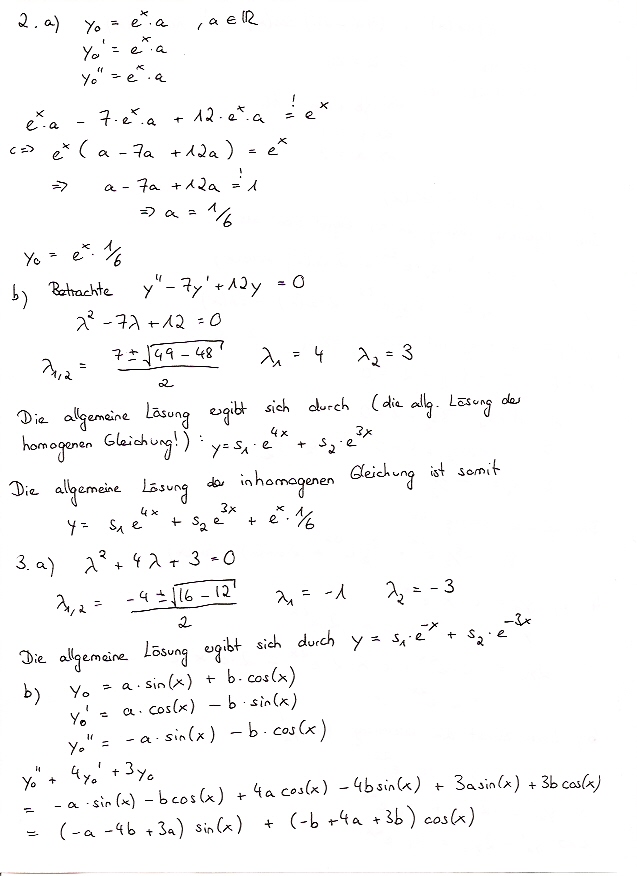 2. a) y₀ = eˣ·a , a ∈ ℝ
y₀' = eˣ·a
y₀'' = eˣ·a
eˣ·a - 7·eˣ·a + 12·eˣ·a =! eˣ
<=> eˣ ( a - 7a + 12a ) = eˣ
=> a - 7a + 12a =! 1
=> a = 1/6
y₀ = eˣ · 1/6
b) Betrachte y'' - 7y' + 12y = 0
λ² - 7λ + 12 = 0
λ₁,₂ = (7 ± √(49 - 48)) / 2 λ₁ = 4 λ₂ = 3
Die allgemeine Lösung ergibt sich durch (die allg. Lösung der
homogenen Gleichung!) : y = s₁ · e⁴ˣ + s₂ · e³ˣ
Die allgemeine Lösung der inhomogenen Gleichung ist somit
y = s₁ e⁴ˣ + s₂ e³ˣ + eˣ · 1/6
3. a) λ² + 4λ + 3 = 0
λ₁,₂ = (-4 ± √(16 - 12)) / 2 λ₁ = -1 λ₂ = -3
Die allgemeine Lösung ergibt sich durch y = s₁ · e⁻ˣ + s₂ · e⁻³ˣ
b) y₀ = a · sin(x) + b · cos(x)
y₀' = a · cos(x) - b · sin(x)
y₀'' = -a · sin(x) - b · cos(x)
y₀'' + 4y₀' + 3y₀
= -a · sin(x) - b cos(x) + 4a cos(x) - 4b sin(x) + 3a sin(x) + 3b cos(x)
= (-a - 4b + 3a) sin(x) + (-b + 4a + 3b) cos(x)